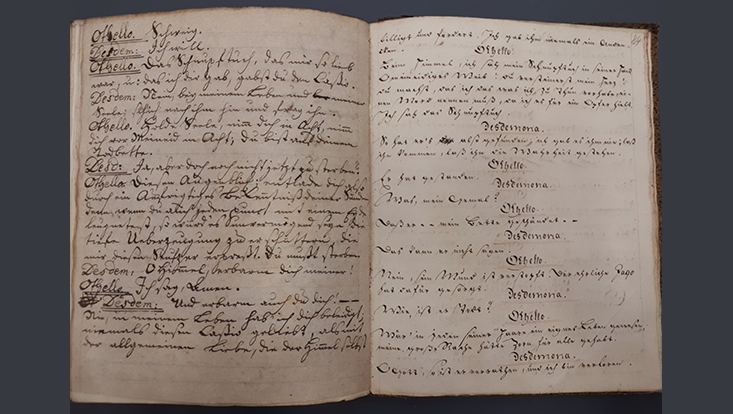 Othello. Schweig.
Desdem: Ich will.
Othello. Das Schnupftuch, das mir so lieb
war, u: das ich dir gab, gabst du dem Cassio.
Desdem: Nein bey meinem Leben und meiner
Seele: schick nach ihm hin und frag ihn.
Othello. Holde Seele, nimm dich in Acht, nimm
dich vor Meineid in Acht, du bist auf deinem
Todbette.
Desd: Ja, aber doch noch nicht jetzt zu sterben?
Othello. Diesen Augenblick: entlade dich also
durch ein aufrichtiges Bekenntniß deiner Sünde
denn, wenn du auch jeden Punct mit einem Eyde
leugnetest, so würdest unvermögend seyn die
tiefe Ueberzeugung zu erschüttern, die
mir diesen Seufzer erpreßt. Du mußt sterben
Desdem: O Himmel, erbarm dich meiner!
Othello. Ich sag, Amen.
Desdem: Und erbarm auch du dich! --
Nie, in meinem Leben hab ich dich beleidigt,
niemals diesen Cassio geliebt, als mit
der allgemeinen Liebe, die der Himmel selbst
billigt und fordert. Ich gab ihm niemals ein Anden-
ken.
Othello.
Beym Himmel, ich sah mein Schnupftuch in seiner Hand
Meineidiges Weib! du versteinerst mein Herz!
du machst, daß ich das was ich zu thun vorhabe, ei-
nen Mord nennen muß, da ich es für ein Opfer hielt.
Ich sah das Schnupftuch.
Desdemona.
So hat er's also gefunden, ich gab es ihm nie; laß
ihn kommen, laß ihn die Wahrheit gestehen.
Othello.
Er hat gestanden.
Desdemona.
Was, mein Gemal?
Othello.
Daß er -- mein Bette geschändet --
Desdemona.
Das kann er nicht sagen.
Othello.
Nein, sein Mund ist verstopft. Der ehrliche Jago
hat dafür gesorgt.
Desdemona.
Wie, ist er todt?
Othello.
Wär' in jedem seiner Haare ein eignes Leben gewesen,
meine große Rache hätte Zorn für alle gehabt.
Desdemona.
O Gott, er ist verrathen, und ich bin verloren.